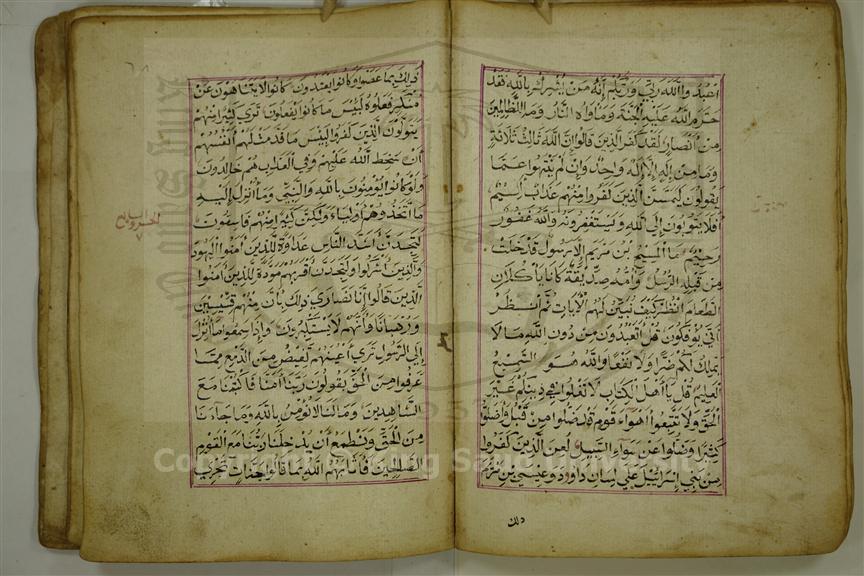 اعبدوا الله ربي وربكم انه من يشرك بالله فقد
حرم الله عليه الجنة ومأواه النار وما للظالمين
من انصار لقد كفر الذين قالوا ان الله ثالث ثلاثة
وما من اله الا اله واحد وان لم ينتهوا عما
يقولون ليمسن الذين كفروا منهم عذاب اليم
افلا يتوبون الى الله ويستغفرونه والله غفور
رحيم ما المسيح بن مريم الا رسول قد خلت
من قبله الرسل وامه صديقة كانا يأكلان
الطعام انظر كيف نبين لهم الآيات ثم انظر
انى يؤفكون قل اتعبدون من دون الله ما لا
يملك لكم ضرا ولا نفعا والله هو السميع
العليم قل يا اهل الكتاب لا تغلوا في دينكم غير
الحق ولا تتبعوا اهواء قوم قد ضلوا من قبل واضلوا
كثيرا وضلوا عن سواء السبيل لعن الذين كفروا
من بني اسرائيل على لسان داود وعيسى بن مريم
ذلك
ذلك بما عصوا وكانوا يعتدون كانوا لا يتناهون عن
منكر فعلوه لبئس ما كانوا يفعلون ترى كثيرا منهم
يتولون الذين كفروا لبئس ما قدمت لهم انفسهم
ان سخط الله عليهم وفي العذاب هم خالدون
ولو كانوا يؤمنون بالله والنبي وما انزل اليه
ما اتخذوهم اولياء ولكن كثيرا منهم فاسقون
لتجدن اشد الناس عداوة للذين امنوا اليهود
والذين اشركوا ولتجدن اقربهم مودة للذين امنوا
الذين قالوا انا نصارى ذلك بأن منهم قسيسين
ورهبانا وانهم لا يستكبرون واذا سمعوا ما انزل
الى الرسول ترى اعينهم تفيض من الدمع مما
عرفوا من الحق يقولون ربنا امنا فاكتبنا مع
الشاهدين وما لنا لا نؤمن بالله وما جاءنا
من الحق ونطمع ان يدخلنا ربنا مع القوم
الصالحين فاثابهم الله بما قالوا جنات تجري